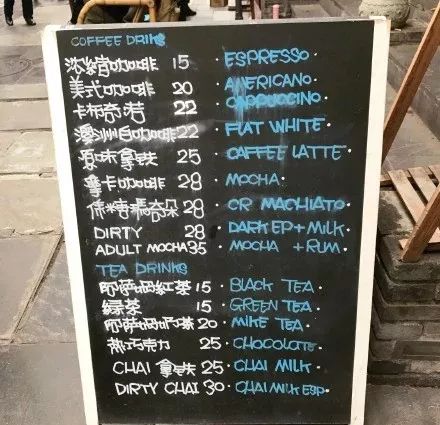 COFFEE DRINKS
浓缩咖啡 15 · ESPRESSO ·
美式咖啡 20 · AMERICANO ·
卡布奇诺 22 · CAPPUCCINO ·
澳洲白咖啡 22 · FLAT WHITE ·
原味拿铁 25 · CAFFEE LATTE ·
摩卡咖啡 28 · MOCHA ·
焦糖玛奇朵 28 · CR MACHIATO ·
DIRTY 28 · DARK EP + MILK ·
ADULT MOCHA 35 · MOCHA + RUM ·
TEA DRINKS
阿萨姆紅茶 15 · BLACK TEA ·
緑茶 15 · GREEN TEA ·
阿萨姆奶茶 20 · MIKE TEA ·
热巧克力 25 · CHOCOLATE ·
CHAI 拿铁 25 · CHAI MILK ·
DIRTY CHAI 30 · CHAI MILK ESP ·